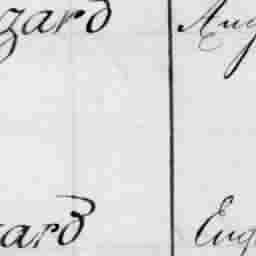 zard Aug
ard Eng